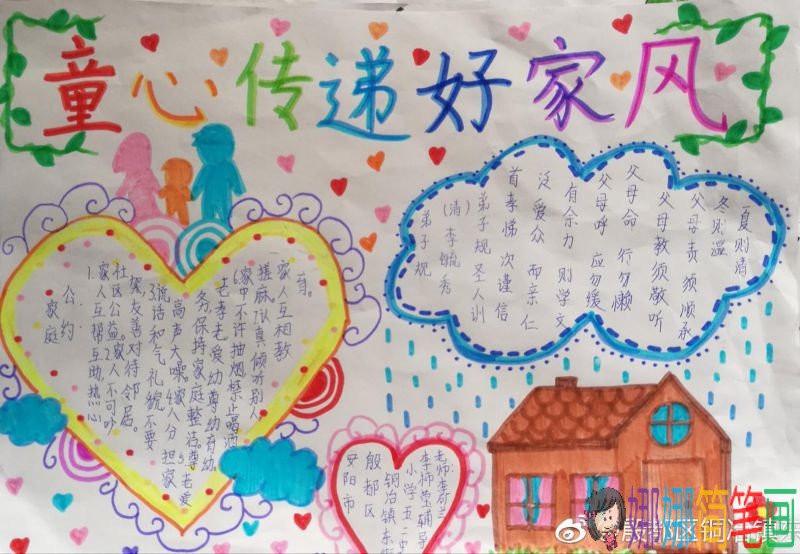 童心传递好家风
家庭
公约
1.家人互帮互助,热心
社区公益。2.家人不可吵
架友善对待邻居。
3.说话和气,礼貌不要
高声大噪。4.家人分担家
务保持家庭整洁。5.老爱
老孝老爱幼尊幼育幼
6.家中不许抽烟禁止喝酒
搓麻。7.认真倾听别人
家人互相教
育。
弟子规
(清)李毓秀
弟子规 圣人训
首亲悌 次谨信
泛爱众 而亲仁
有余力 则学文
父母呼 应勿缓
父母命 行勿懒
父母教 须敬听
父母责 须顺承
冬则温
夏则清
安阳市
殷都区
铜冶镇东
小学五.二
辅导
老师:李荷兰
娜娜简笔画
@殷都区铜冶镇